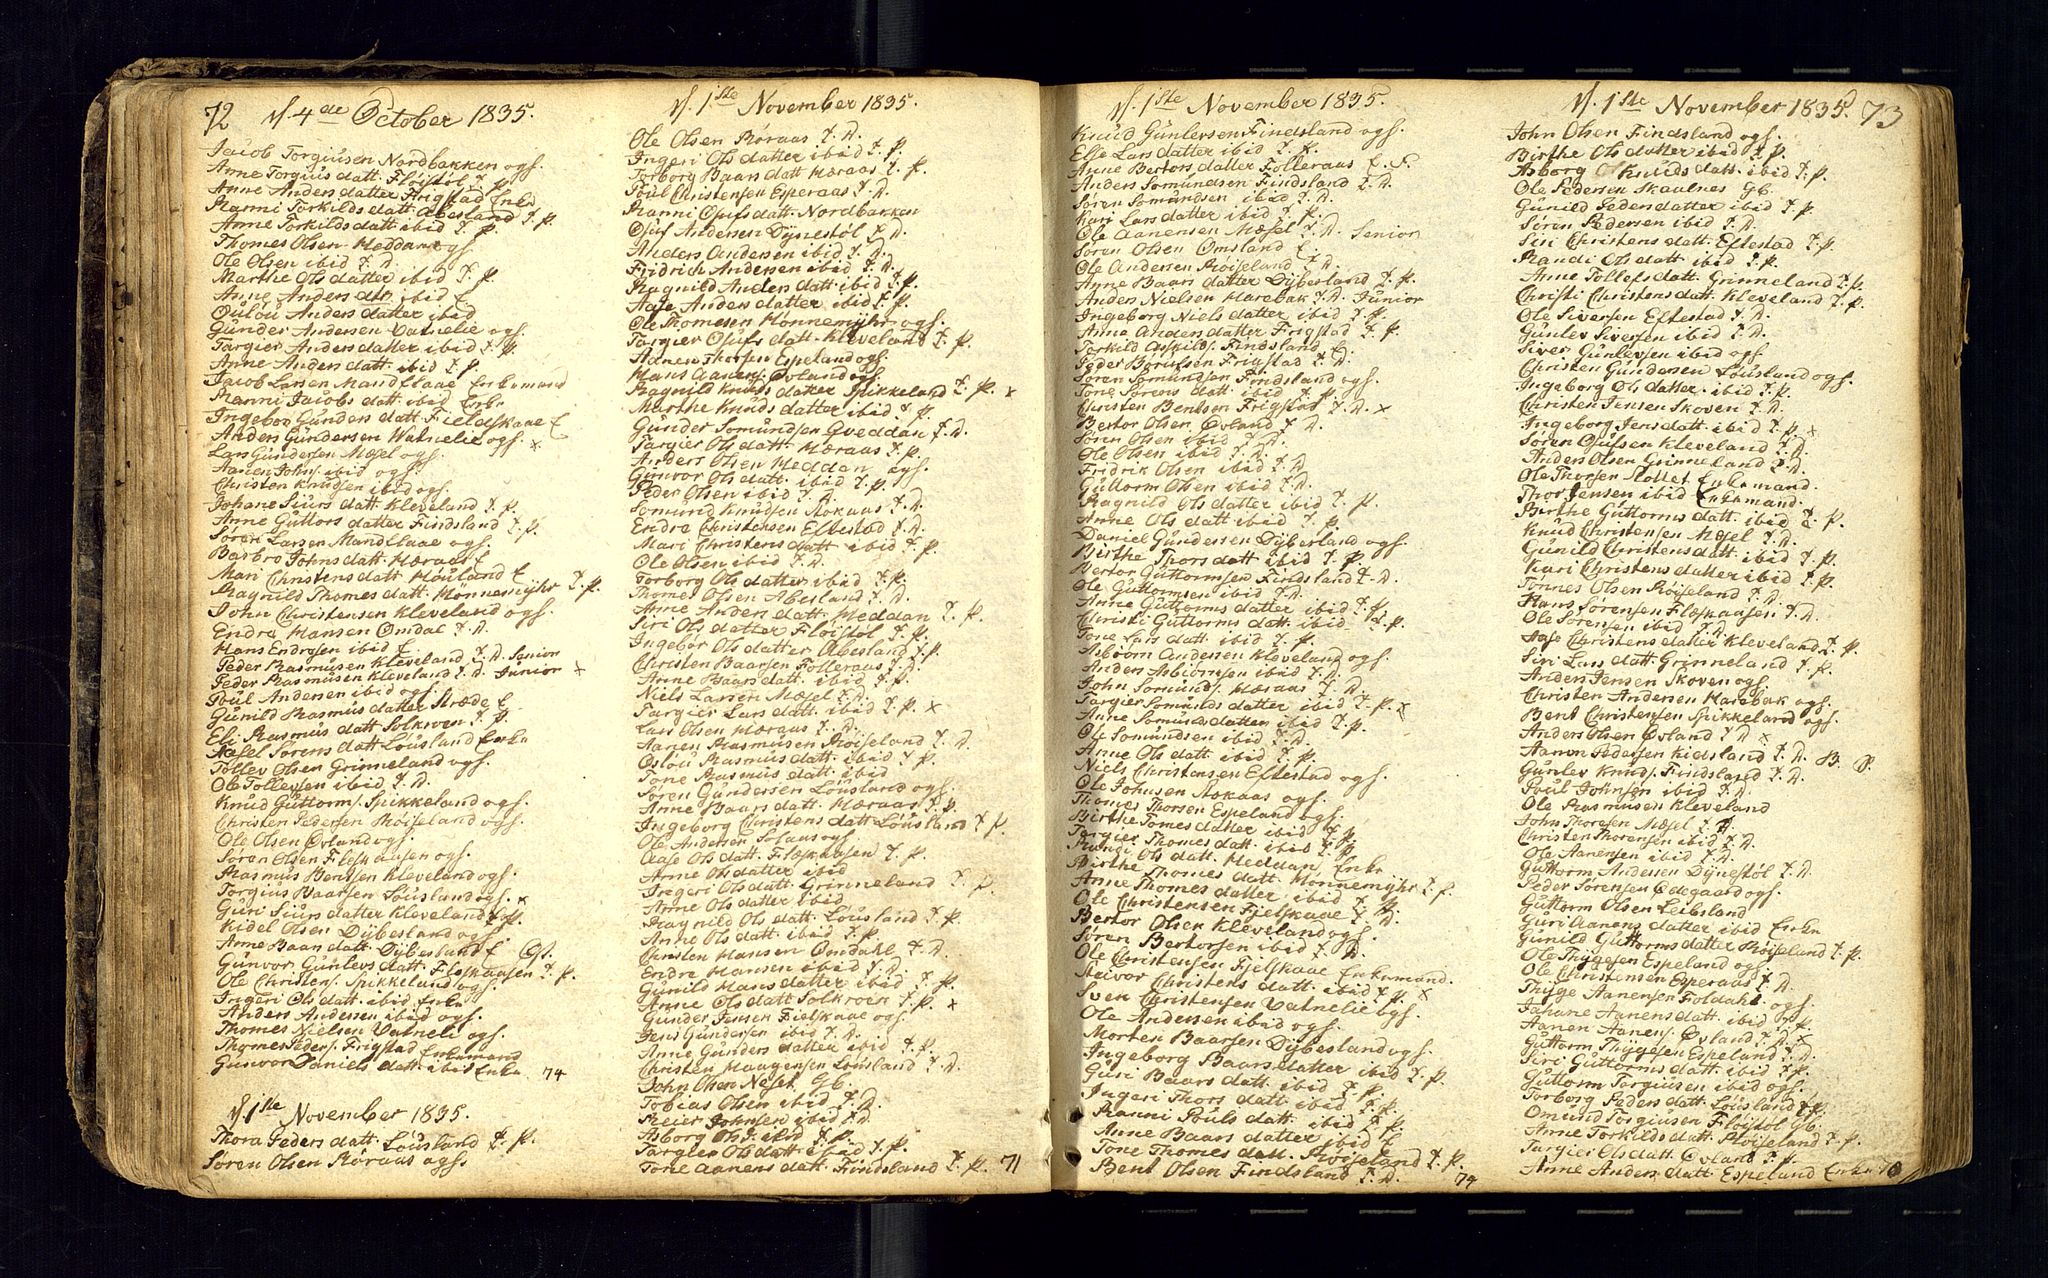 72 d. 4de October 1835.
Jacob Torgiusen Nordbakken ogf.
Anne Torgius datt. Fløistøl T. P.
Anne Anders datter Frigstad Enke
Ranni Torkilds datt. Abesland T. P.
Anne Torkilds datt ibid T. P.
Thomes Olsen Meddan ogf.
Ole Olsen ibid T. D.
Marthe Ols datter ibid T. P.
Anne Anders dtr. ibid E
Oulou Anders datter ibid
Gunder Andersen Vatnelie ogf.
Targier Anders datter ibid T. P.
Anne Anders datt. ibid T. P.
Jacob Larsen Mandflaae Enkemand
Ranni Jacobs datt ibid Enke
Ingebor Gunders datt Fieldskaae E
Anders Gundersen Watnelie ogf. x
Lars Gundersen Mæsel ogf.
Aanen Johns. ibid ogf.
Christen Knudsen ibid ogf.
Johane Siurs datt Kleveland T. P.
Anne Guttors datter Findsland T. P.
Søren Larsen Mandflaae ogf.
Barbro Johns datt. Høraas E
Mari Christens datt Houland E
Ragnild Thomes datt. Hønnemyhr T. P.
John Christensen Kleveland ogf.
Endre Hansen Omdal T. D.
Hans Endresen ibid E
Peder Rasmusen Kleveland T. D. Senior
Peder Rasmusen Kleveland T. D. Junior x
Poul Andersen ibid ogf.
Gunild Rasmus datter Stræde E
Eli Rasmus datt Solkroen T. P.
Assel Sørens datt Løusland Enke
Tollev Olsen Grinneland ogf.
Ole Tollevsen ibid T. D.
Knud Guttorms. Spikkeland ogf.
Christen Pedersen Røiseland ogf.
Ole Olsen Øvland ogf.
Søren Olsen Fleskaasen ogf.
Rasmus Bentsen Kleveland ogf.
Torgius Baarsen Løusland ogf. x
Guri Siurs datter Kleveland T. P.
Kidel Olsen Dybesland ogf.
Anne Baars datt. Dybesland E Cst.
Gunvor Gunlevs datt. Fleskaasen T. P.
Ole Christens. Spikkeland ogf.
Ingeri Ols datt. ibid Enke
Anders Andersen ibid ogf.
Thomes Nielsen Vatneli ogf.
Thomes Peders. Frigstad Enkemand
Gunvor Daniels datt ibid Enke 74
d. 1ste November 1835.
Thora Peders datt. Løusland T. P.
Søren Olsen Røraas ogf.
d. 1ste November 1835.
Ole Olsen Røraas T. D.
Ingeri Ols datter ibid T. P.
Torborg Baars datt Høraas T. P.
Poul Christensen Esperaas T. D.
Ranni Olufs datt. Nordbakken
Oluf Andersen Dynestøl T. D.
Anders Andersen ibid T. D.
Fridrich Andersen ibid T. D.
Ragnild Anders datt ibid T. P.
Aase Anders datter ibid T. P.
Ole Thomesen Hønnemyhr ogf.
Targier Olufs datt. Kleveland T. P.
Aanen Thorsen Espeland ogf.
Hans Aanens. Øvland ogf.
Ragnild Knuds datter Spikkeland T. P. x
Marthe Knuds datter ibid T. P.
Gunder Somundsen Qveddan T. D.
Targier Ols datt. Høraas T. P.
Anders Olsen Heddan ogf.
Gunvor Ols datt. ibid T. P.
Peder Olsen ibid T. D.
Somund Knudsen Aokaas T. D.
Endre Christensen Eftestad T. D.
Mari Christens datt ibid T. P.
Ole Olsen ibid T. D.
Torborg Ols datter ibid T. P.
Thomes Olsen Abesland T. D.
Anne Anders datt. Meddan T. P.
Siri Ols datter Fløistøl T. P.
Ingebor Ols datter Abesland T. P.
Christen Baarsen Folleraas T. D.
Anne Baars datt. ibid T. P.
Niels Larsen Mæsel T. D.
Targier Lars datt. ibid T. P. x
Lars Olsen Høraas T. D.
Aanen Rasmusen Røiseland T. D.
Oslou Rasmus datt. ibid T. P.
Tone Rasmus datt. ibid
Søren Gundersen Løusland ogf.
Anne Baars datt. Høraas T. P.
Ingeborg Christens datt Løusland T. P.
Ole Andersen Solaas ogf.
Aase Ols datt. Fleskaasen T. P.
Anne Ols datter ibid
Ingeri Ols datt. Grinneland T. P.
Anne Ols datter ibid
Ragnild Ols datt. Løusland T. P.
Anne Ols datt. ibid T. P.
Christen Hansen Omdahl T. D.
Endre Hansen ibid T. D.
Gunild Hans datter ibid T. P.
Anne Ols datt Solkroen T. P. x
Gunder Jensen Fielskaae ogf.
Jens Gundersen ibid T. D.
Anne Gunders datter ibid T. P.
Christen Maagensen Løusland T. D.
John Olsen Neset Gb.
Tobias Olsen ibid T. D.
Reier Johnsen ibid T. D.
Asborg Ols d. ibid T. P.
Targier Ols datt ibid T. P.
Tone Aanens datt. Findsland T. P. 71
d. 1ste November 1835.
Knud Gunlevsen Findsland ogf.
Else Lars datter ibid T. P.
Anne Bertors datter Folleraas E. F.
Anders Somundsen Findsland T. D.
Søren Somundsen ibid T. D.
Kari Lars datter ibid T. P.
Ole Aanensen Mæsel T. D. Senior
Søren Olsen Omsland E.
Ole Andersen Røiseland T. D.
Anne Baars datter Dybesland T. P.
Anders Nielsen Harebak T. D. Junior
Ingeborg Niels datter ibid T. P.
Anne Anders datter Frigstad T. P.
Torkild Askilds. Findsland E.
Peder Børufsen Frigstad T. D.
Søren Somundsen Findsland ogf.
Tone Sørens datt. ibid T. P.
Christen Bentsen Frigstad T. D. x
Bertor Olsen Øvland T. D.
Søren Olsen ibid T. D.
Ole Olsen ibid T. D.
Fridrik Olsen ibid T. D.
Guttorm Olsen ibid T. D.
Ragnild Ols datter ibid T. P.
Anne Ols datt ibid T. P.
Daniel Gundersen Dybesland ogf.
Birthe Thors datt ibid T. P.
Bertor Guttormsen Findsland T. D.
Ole Guttormsen ibid T. D.
Anne Guttorms datter ibid T. P.
Christi Guttorms datt. ibid T. P.
Tone Lars datt. ibid T. P.
Asbiorn Andersen Kleveland ogf.
Anders Asbiornsen ibid T. D.
John Somunds. Høraas T. D.
Targier Somunds datter ibid T. P. x
Anne Somunds datter ibid T. P.
Ole Somundsen ibid T. D.
Anne Ols datt ibid T. P.
Niels Christensen Eftestad ogf.
Ole Johnsen Aokaas ogf.
Thomes Thorsen Espeland ogf.
Birthe Tomes datter ibid T. P.
Targier Thomes datt. ibid T. P.
Randi Ols datt. Meddan Enke
Birthe Thomes datt. Hønnemyhr T. P.
Anne Thomes datter ibid T. P.
Ole Christensen Fjelskaae T. D.
Bertor Olsen Kleveland ogf.
Søren Bertorsen ibid T. D.
Ole Christensen Fjelskaae Enkemand.
Reivor Christens datt ibid T. P. x
Sven Christensen Vatnelie ogf.
Ole Andersen ibid ogf.
Morten Baarsen Dybesland ogf.
Ingeborg Baars datter ibid T. P.
Guri Baars datt. ibid T. P.
Ingeri Thors datt. ibid T. P.
Ranni Pouls datt. ibid T. P.
Anne Baars datter ibid E
Tone Thomes datt. Røiseland T. P.
Bent Olsen Findsland T. D. 74
d. 1ste November 1835. 73
John Olsen Findsland ogf.
Birthe Ols datter ibid T. P.
Asborg Knuds datt. ibid T. P.
Ole Pedersen Skaulnes Gb.
Gunild Peders datter ibid T. P.
Søren Pedersen ibid T. D.
Siri Christens datt. Eftestad T. P.
Randi Ols datt. ibid T. P.
Anne Tollefs datt. Grinneland T. P.
Christi Christens datt. Kleveland T. P.
Ole Siversen Eftestad T. D.
Gunlev Siversen ibid T. D.
Siver Gunlevsen ibid ogf.
Christen Gundersen Løusland ogf.
Ingeborg Ols datter ibid T. P.
Christen Jensen Skoven T. D.
Ingeborg Jens datt. ibid T. P. x
Søren Olufsen Kleveland T. D.
Anders Olsen Grinneland T. D.
Ole Thorsen Slottet Enkemand.
Thor Jensen ibid Enkemand.
Birthe Guttorms datt. ibid T. P.
Knud Christensen Mæsel T. D.
Gunild Christens datt. ibid T. P.
Kari Christens datter ibid T. P.
Tønnes Olsen Røiseland T. D.
Hans Sørensen Fleskaasen T. D.
Ole Sørensen ibid T. D.
Aase Christens datter Kleveland T. P.
Siri Lars datt. Grinneland T. P.
Anders Jensen Skoven ogf.
Christen Andersen Harebak ogf.
Bent Christensen Spikkeland ogf.
Anders Olsen Øvland T. D. x
Aanen Pedersen Kidsland T. D. B. S.
Gunlev Knuds. Findsland T. D.
Poul Johnsen ibid T. D.
Ole Rasmusen Kleveland
John Thorsen Mæsel T. D.
Christen Thorensen ibid T. D.
Ole Aanensen ibid T. D.
Guttorm Andersen Dynestøl T. D.
Peder Sørensen Ødegaard ogf.
Guttorm Olsen Leibsland
Guri Aanens datter ibid Enke
Gunild Guttorms datter Røiseland T. P.
Ole Thygesen Espeland ogf.
Ole Christensen Esperaas T. D.
Thyge Aanensen Foldahl ogf.
Johane Aanens datt. ibid T. P.
Aanen Aanens. Øvland T. D. x
Guttorm Thygesen Espeland T. D.
Siri Guttorms datt. ibid T. P.
Guttorm Torgiusen ibid ogf.
Torborg Peders datt. Løusland T. P.
Omund Torgiusen Fløistøl Gb.
Anne Torkilds datt. Røiseland T. P.
Targier Ols datt. Øvland T. P.
Anne Anders datt. Espeland Enke 70